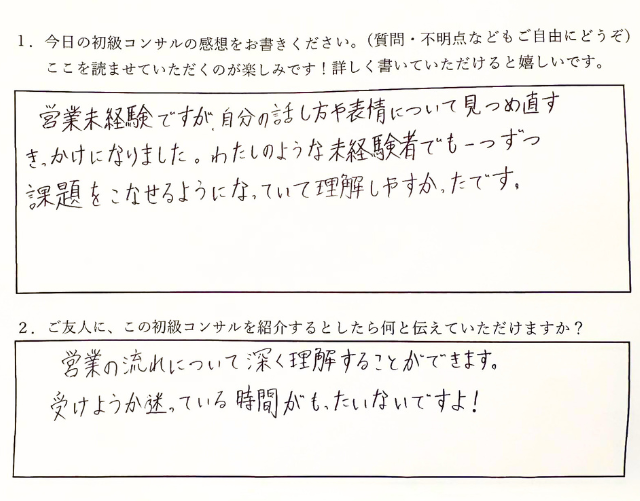 1．今日の初級コンサルの感想をお書きください。（質問・不明点などもご自由にどうぞ）
ここを読ませていただくのが楽しみです！詳しく書いていただけると嬉しいです。
営業未経験ですが、自分の話し方や表情について見つめ直す
きっかけになりました。わたしのような未経験者でも一つずつ
課題をこなせるようになっていて理解しやすかったです。
2．ご友人に、この初級コンサルを紹介するとしたら何と伝えていただけますか？
営業の流れについて深く理解することができます。
受けようか迷っている時間がもったいないですよ！